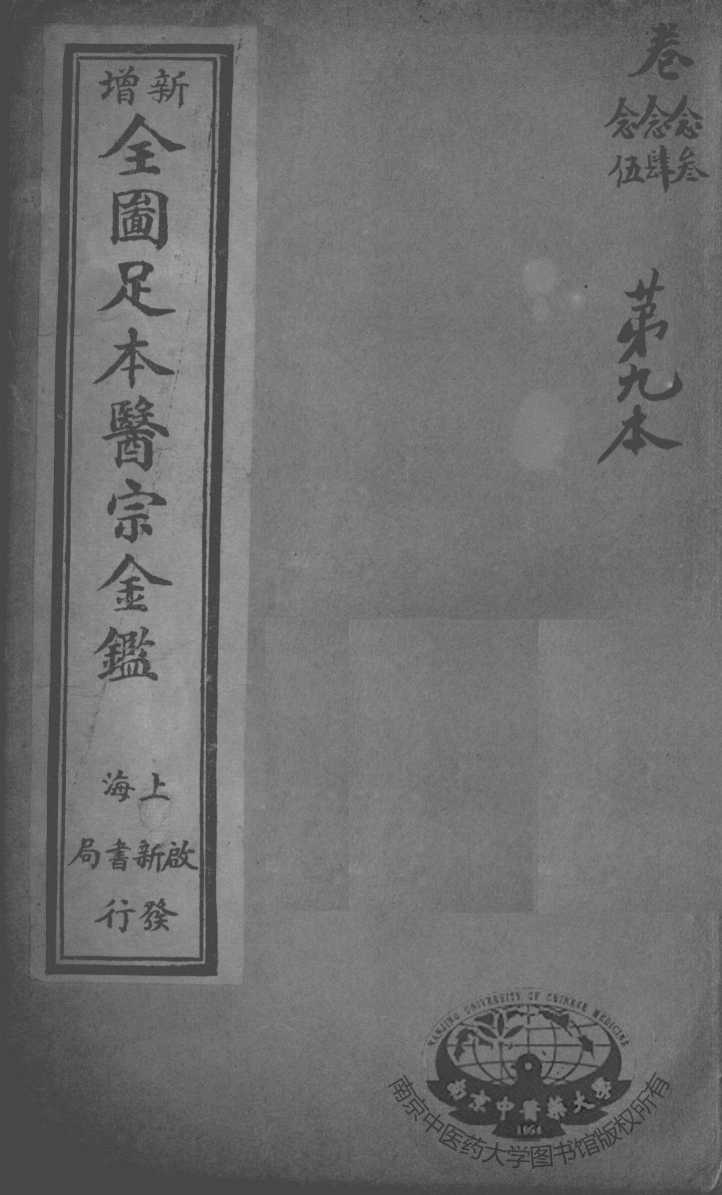 卷
念叁
念肆
念伍
苐九本
新增
全圖足本醫宗金鑑
上海
啟新書局
發行
NANJING UNIVERSITY OF CHINESE MEDICINE
南京中醫藥大學
南京中医药大学图书馆版权所有